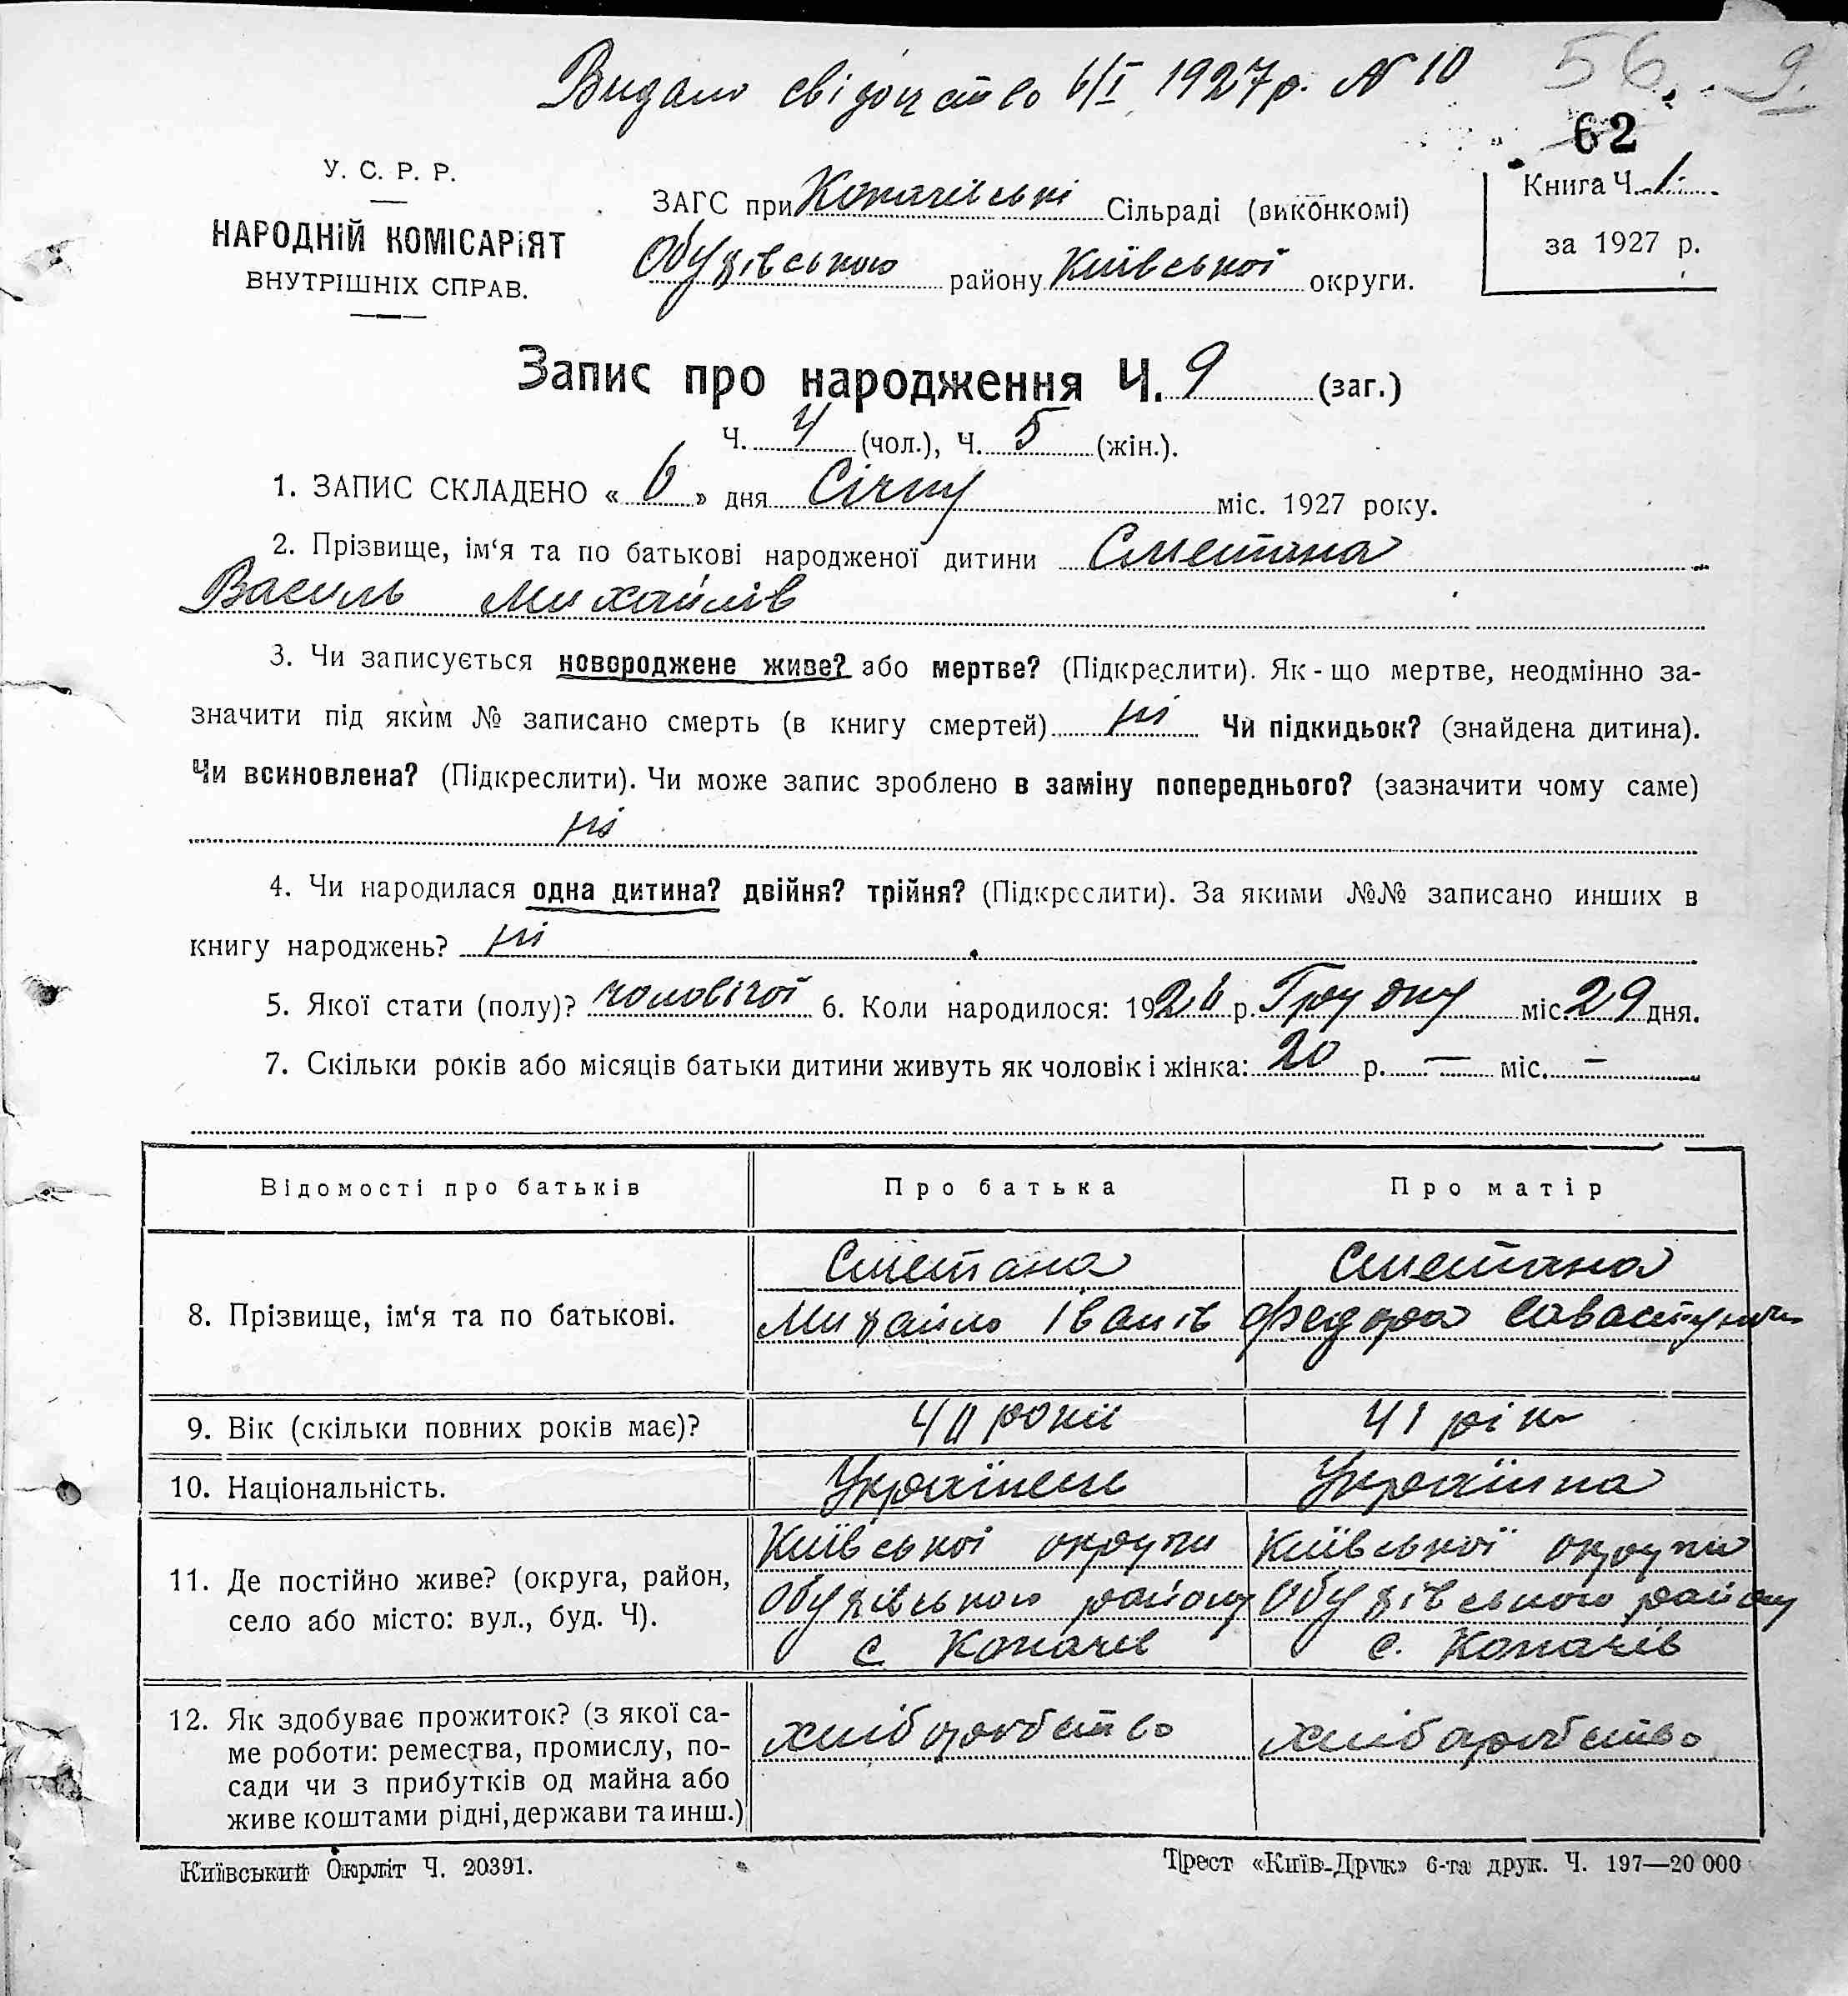 Видано свідоцтво 6/I 1927р. № 10
56. 9.
62
У. С. Р. Р.
НАРОДНІЙ КОМІСАРІЯТ
ВНУТРІШНІХ СПРАВ.
ЗАГС при Копачівські Сільраді (виконкомі)
Обухівського району Київської округи.
Книга Ч. 1.
за 1927 р.
Запис про народження Ч. 9 (заг.)
Ч. 4 (чол.), Ч. 5 (жін.).
1. ЗАПИС СКЛАДЕНО « 6 » дня Січну міс. 1927 року.
2. Прізвище, ім‘я та по батькові народженої дитини Сметана
Василь Михайлів
3. Чи записується новороджене живе? або мертве? (Підкреслити). Як-що мертве, неодмінно за-
значити під яким № записано смерть (в книгу смертей) ні Чи підкидьок? (знайдена дитина).
Чи всиновлена? (Підкреслити). Чи може запис зроблено в заміну попереднього? (зазначити чому саме)
ні
4. Чи народилася одна дитина? двійня? трійня? (Підкреслити). За якими №№ записано инших в
книгу народжень? ні
5. Якої стати (полу)? чоловічої 6. Коли народилося: 1926 р. Грудну міс. 29 дня.
7. Скільки років або місяців батьки дитини живуть як чоловік і жінка: 20 р. — міс. —
Відомості про батьків Про батька Про матір
Сметана Сметана
8. Прізвище, ім‘я та по батькові. Михайло Іванів Федора
9. Вік (скільки повних років має)? роки 41 рік
10. Національність. Українець Українка
Київської округи Київської округи
11. Де постійно живе? (округа, район, Обухівського району Обухівського району
село або місто: вул., буд. Ч). с. Копачів с. Копачів
12. Як здобуває прожиток? (з якої са- хліборобство хліборобство
ме роботи: ремества, промислу, по-
сади чи з прибутків од майна або
живе коштами рідні, держави та инш.)
Київський Окрліт Ч. 20391. Трест «Київ-Друк» 6-та друк. Ч. 197—20 000